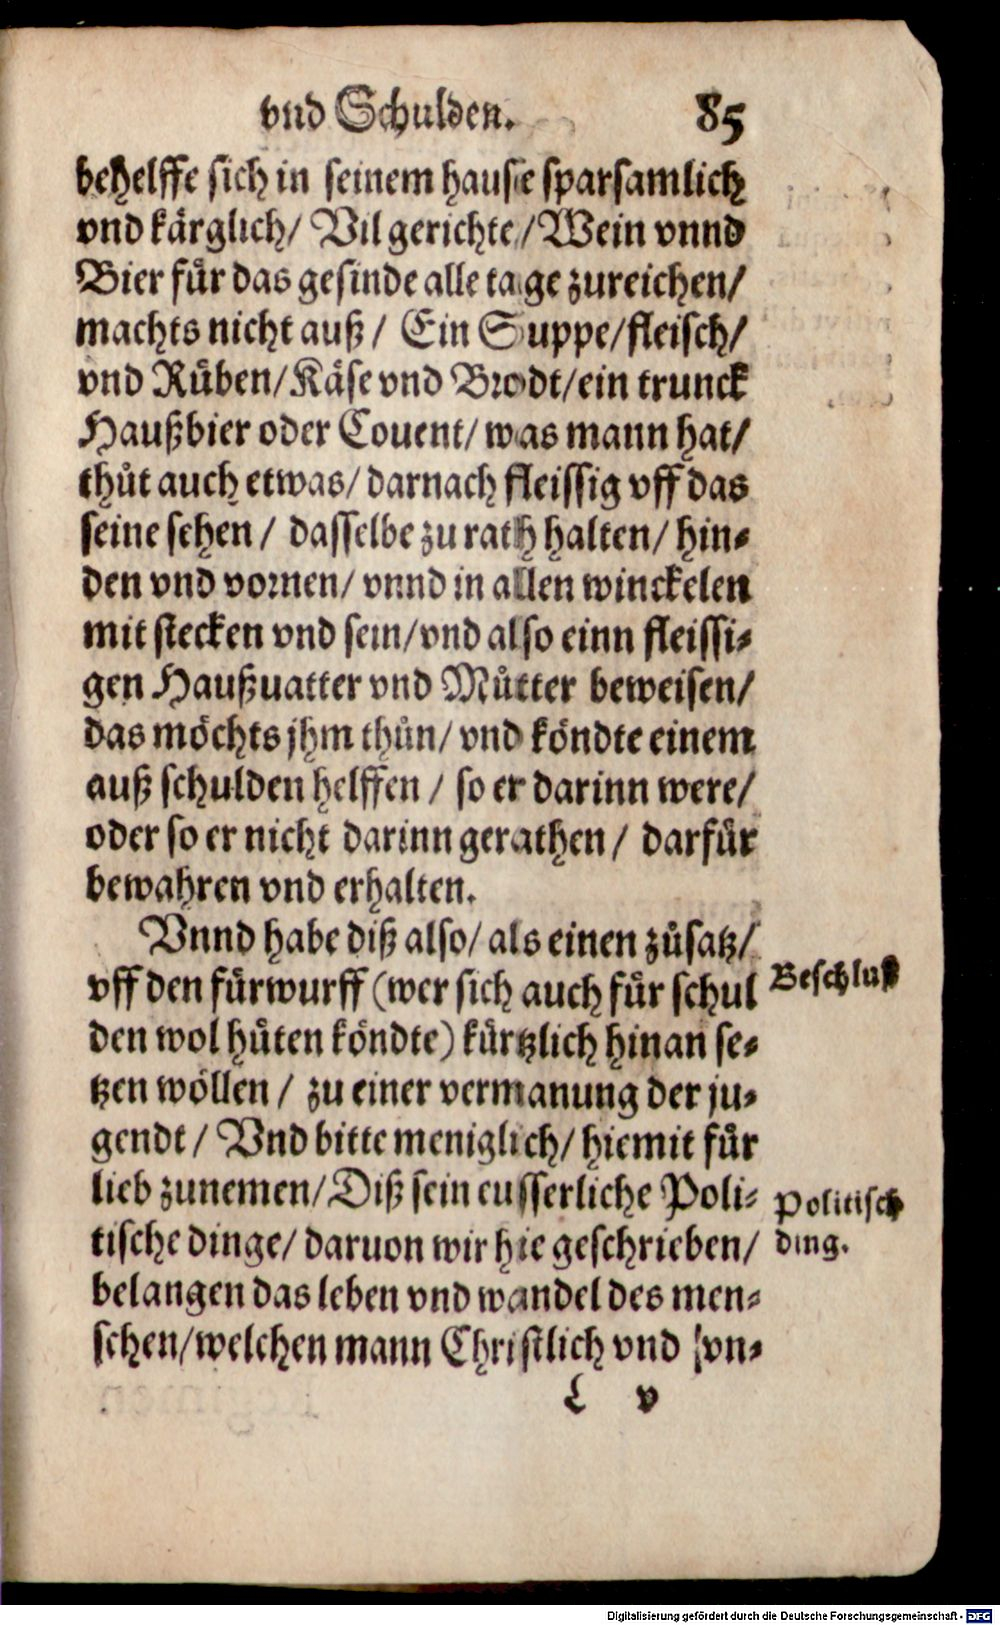 vnd Schulden. 85
behelffe sich in seinem hause sparsamlich
vnd kärglich/ Vil gerichte/ Wein vnnd
Bier für das gesinde alle tage zureichen/
machts nicht auß/ Ein Suppe/fleisch/
vnd Rüben/Käse vnd Brodt/ein trunck
Haußbier oder Couent/ was mann hat/
thůt auch etwas/ darnach fleissig vff das
seine sehen/ dasselbe zu rath halten/ hin-
den vnd vornen/ vnnd in allen winckelen
mit stecken vnd sein/vnd also einn fleissi-
gen Haußuatter vnd Můtter beweisen/
das möchts jhm thůn/ vnd köndte einem
auß schulden helffen/ so er darinn were/
oder so er nicht darinn gerathen/ darfür
bewahren vnd erhalten.
Vnnd habe diß also/ als einen zůsatz/
vff den fürwurff (wer sich auch für schul
Beschluß
den wol hüten köndte) kürtzlich hinan se-
tzen wöllen/ zu einer vermanung der ju-
gendt/ Vnd bitte meniglich/ hiemit für
lieb zunemen/ Diß sein eusserliche Poli-
Politisch
tische dinge/ daruon wir hie geschrieben/
ding.
belangen das leben vnd wandel des men-
schen/welchen mann Christlich vnd von-
L v
Digitalisierung gefördert durch die Deutsche Forschungsgemeinschaft - DFG